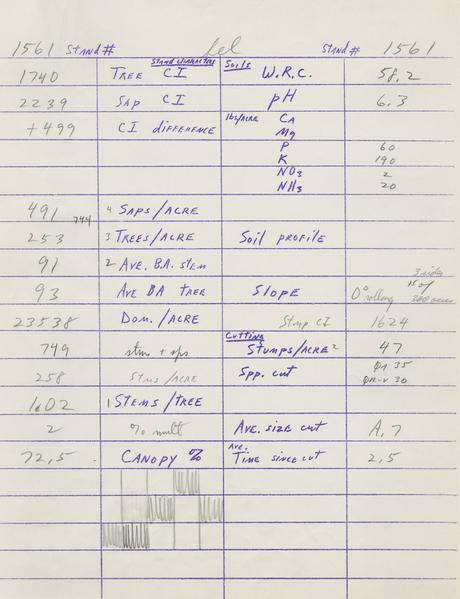 1561 Stand# fel Stand # 1561
Stand characters Soils
1740 Tree CI W.R.C. 58.2
2239 Sap CI pH 6.3
+499 CI difference lbs/acre Ca
Mg
P 60
K 190
NO3 2
NH3 20
491 744 4 Saps/acre
253 3 Trees/acre Soil profile
91 2 Ave. B.A. stem
93 Ave BA tree Slope 0° rolling 3 sides 15 of
23538 Dom./acre Stump CI 1624
Cutting
749 stms + sps Stumps/acre 2 47
258 Stms/acre Spp. cut 35
30
1.02 1 Stems/tree
2 % mult Ave. size cut A.7
72.5 Canopy % Ave. Time since cut 2.5